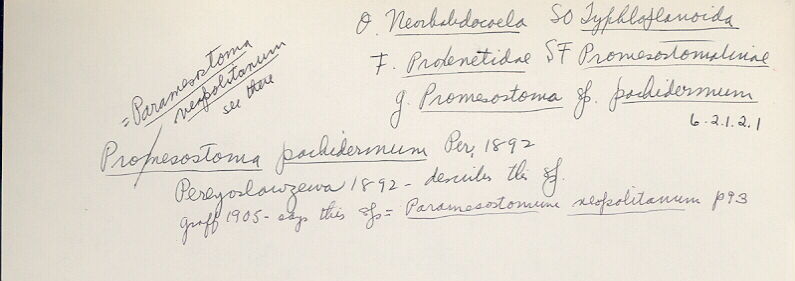 O. Neorhabdocoela SO Typhloplanoida
F. Proxenetidae SF Promesostomatinae
g. Promesostoma sp. pachidermum
6.2.1.2.1
= Paramesostoma
neapolitanum
see there
Promesostoma pachidermum Per, 1892
Pereyaslawzewa 1892 - describes this sp.
Graff 1905 - says this sp = Paramesostomum neapolitanum p93